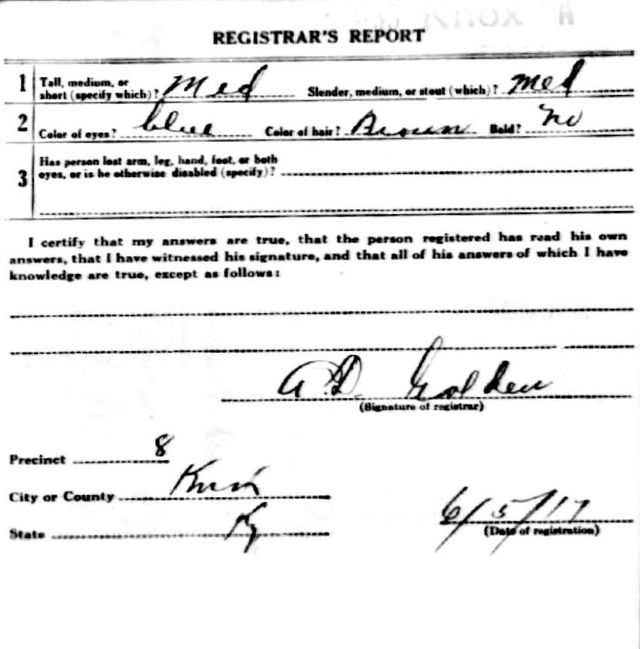 REGISTRAR'S REPORT
1 Tall, medium, or short (specify which)? Med Slender, medium, or stout (which)? Med
2 Color of eyes? blue Color of hair? Brown Bald? No
3 Has person lost arm, leg, hand, foot, or both
eyes, or is he otherwise disabled (specify)?
I certify that my answers are true, that the person registered has read his own
answers, that I have witnessed his signature, and that all of his answers of which I have
knowledge are true, except as follows:
A.D. Golden
(Signature of registrar)
Precinct 8
City or County Knox
State Ky
6/5/17
(Date of registration)